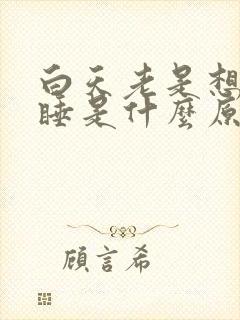 白天老是想
睡是什麼原
顧言希